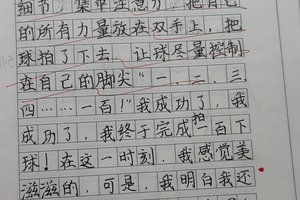 细节，集中注意力，把自己
的所有力量放在双手上，把
球拍了下去，让球尽量控制
在自己的脚尖“一、二、三
四……一百！”我成功了，我
成功了，我终于完成拍一百下
球！在这一时刻，我感觉美
滋滋的，可是，我明白我还